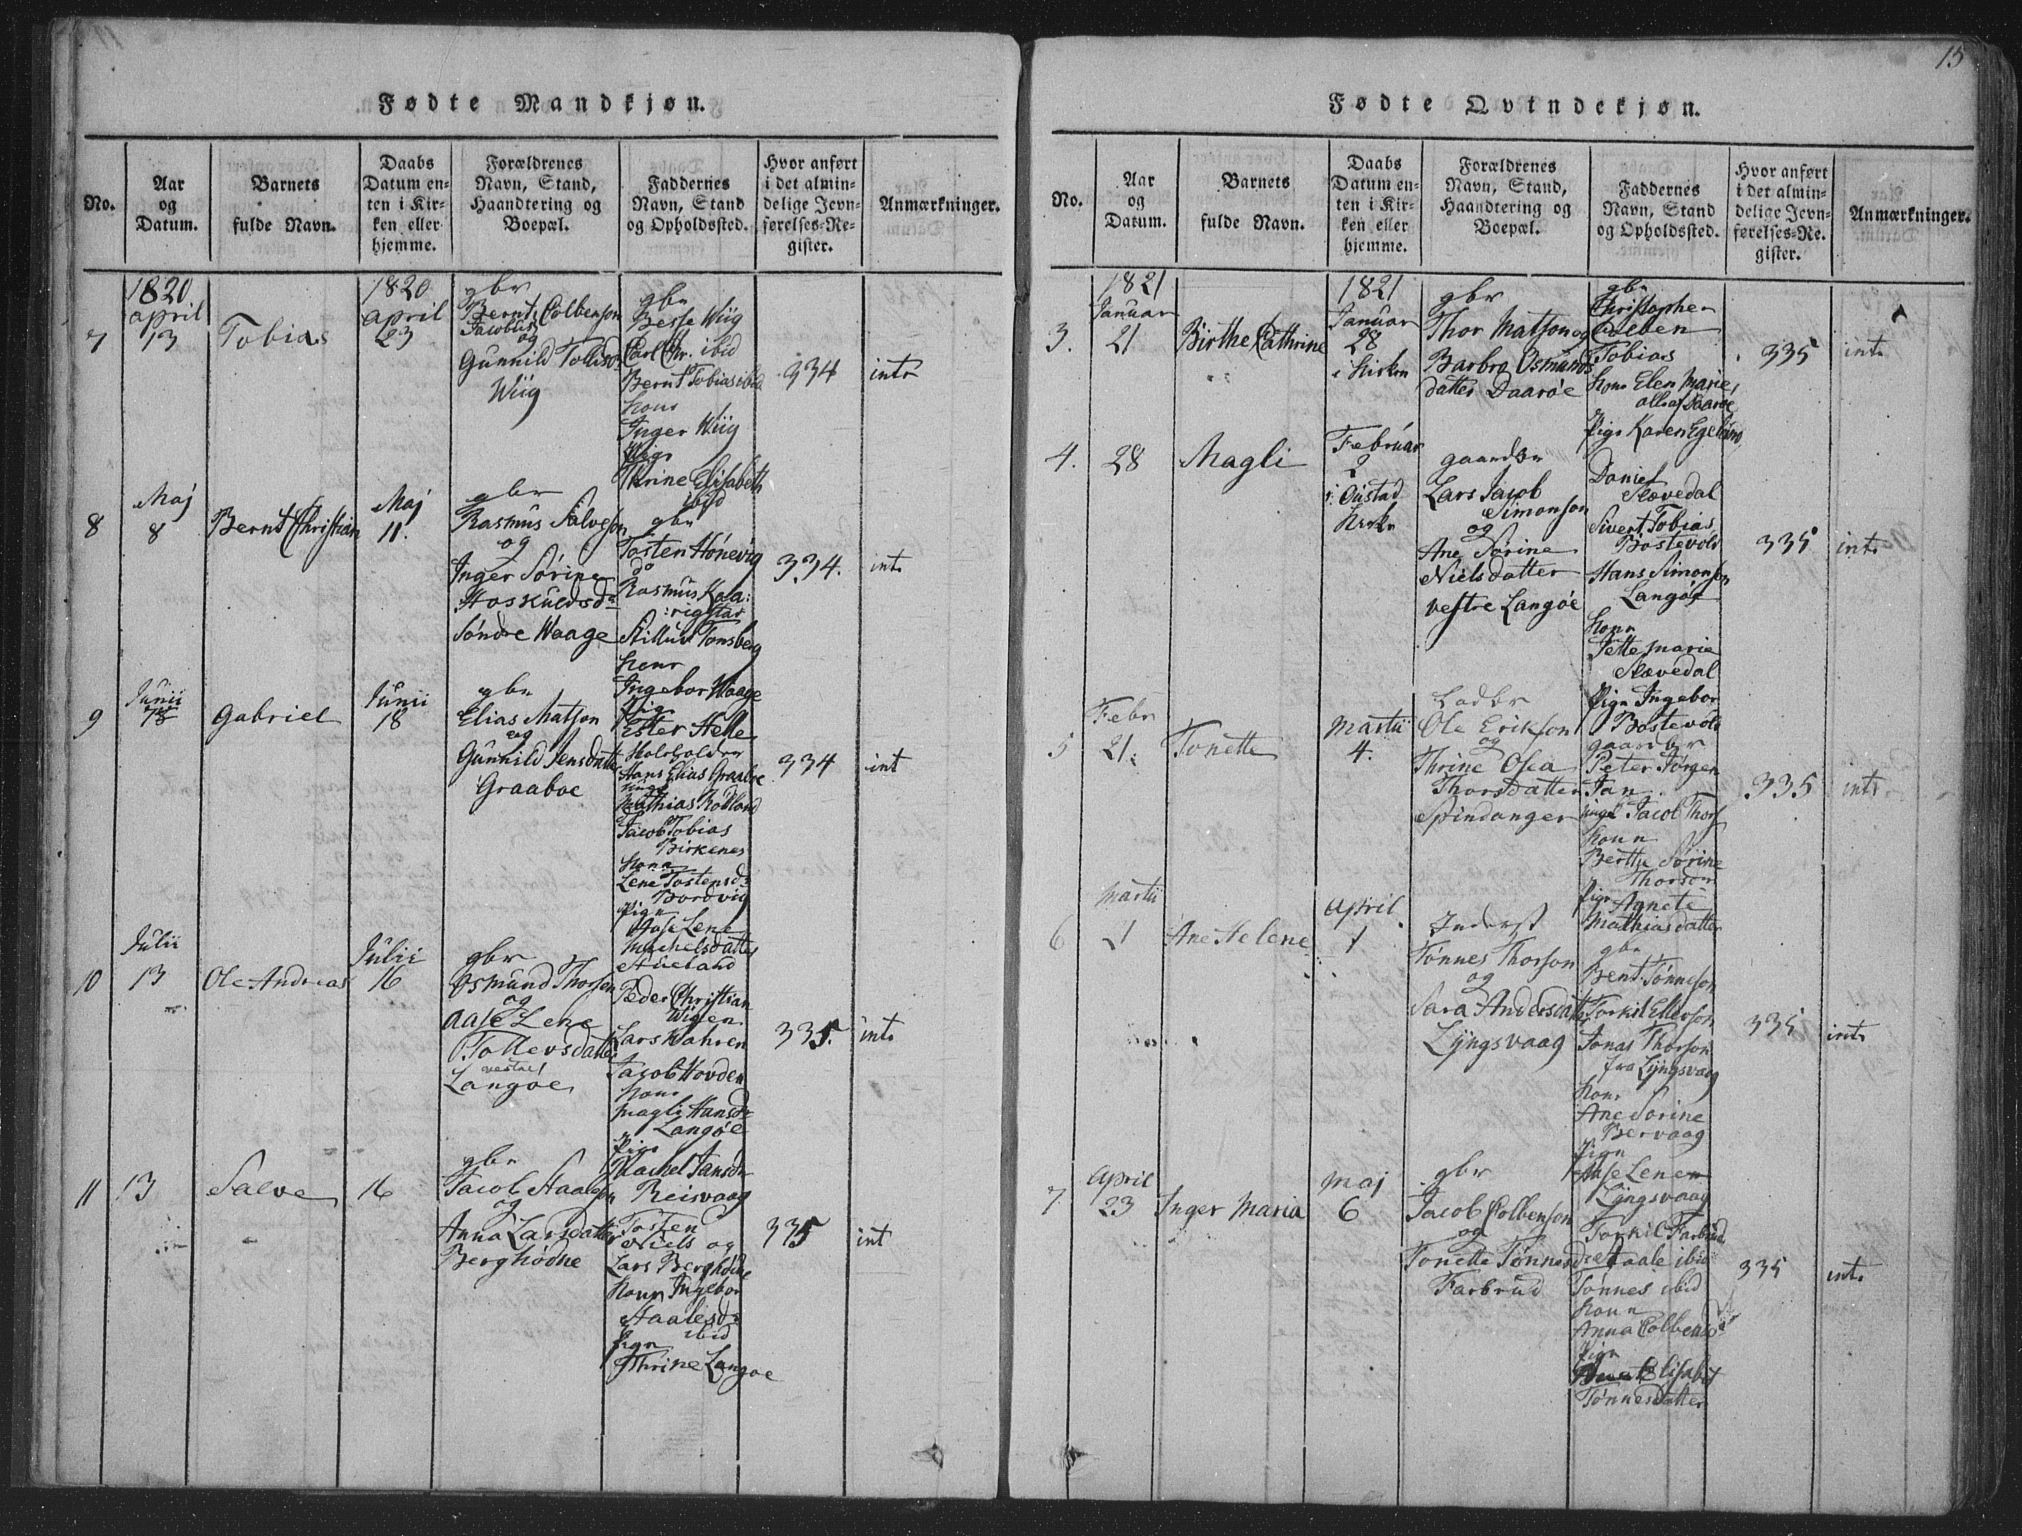 Fødte Mandkjøn.
No.
Aar
og
Datum.
Barnets
fulde Navn.
Daabs
Datum en-
ten i Kir-
ken eller
hjemme.
Forældrenes
Navn, Stand,
Haandtering og
Boepæl.
Faddernes
Navn, Stand
og Opholdssted.
Hvor anført
i det almin-
delige Jevn-
førelses-Re-
gister.
Anmærkninger.
7
1820
april
13
Tobias
1820
april
23
gbr
Bernt Colbenson
Jacobus
og
Gunnild Tollisdr
Wiig
gbr
Besse Wiig
Carl Chr. ibid
Bernt Tobias ibid
kour
Inger Wiig
Pigr
Thrine Elisabeth
ibid
934
intr
8
Maj
8
Bernt Christian
Maj
11.
gbr
Rasmus Salveson
og
Inger Sørine
Hoskuldsdr
Søndre Waage
gbr
Tosten Hønevig
do
Rasmus Kala:
:rigstad
Tonsberg
konr
Ingebor Waage
Pigr
Ester Helle
334.
intr
9
Junii
18
Gabriel
Junii
18
gbr
Elias Matson
og
Gunnild Jensdatter
Graaboe
Hans Elias Graaboe
Mathias Rødland
Jacob Tobias
Birkenes
kona
Lene Tostensdr
Bordvig
Pign
Aase Lene
Michelsdatter
Stueland
334
int
10
Julii
13
Ole Andreas
Julii
16
gbr
Osmund Thorsen
og
Aase Lene
Tollevsdatter
vestre
Langøe
Peder Christian
Wigen
Lars Wahren
Jacob Hovden
konr
magli Hansdr
Langøe
Pigr
Rachel Jansdr
Reisvaag
335.
intr
11
13
Salve
16
gbr
Jacob Staaleson
og
Anna Larsdatter
Berghødne
Tosten
Niels og
Lars Berghødne
Koun Ingebor
Staalesdr
ibid
Pign
Thrine Langøe
335
int
15
Fødte Qvindekjøn.
No.
Aar
og
Datum.
Barnets
fulde Navn.
Daabs
Datum en-
ten i Kir-
ken eller
hjemme.
Forældrenes
Navn, Stand,
Haandtering og
Boepæl.
Faddernes
Navn, Stand
og Opholdssted.
Hvor anført
i det almin-
delige Jevn-
førelses-Re-
gister.
Anmærkninger.
3.
1821
Januar
21
Birthe Cathrine
1821
Januar
28
i kirken
gbr
Thor Matson og
Barbro Osmunds
datter Daarøe
gbr
Christopher
Colben
Tobias
kone Elen Marie
alle af Daarøe
Pige Karen Egelund
335
intr
4.
28
Magli
Februar
2
i Oustad
kirke
gaardbr
Lars Jacob
Simonson
og
Ane Sørine
Nielsdatter
vestre Langøe
Daniel
Slævedal
Sivert Tobias
Bostevold
Hans Simonson
Langøe
konr
Jette marie
Slævedal
Pign Ingebor
Bostevold
335
intr
5
Febr
21.
Tonette
Martii
4.
Ladbr
Ole Erikson
og
Thrine Olea
Thorsdatter
Spindanger
gaardbr
Peter Jørgen
Jan
ungk Jacob Thors
koun
Berthe Sørine
Thorsdr
Pigr Agnete
Mathiasdatter
335
intr
6
Martii
21
Ane Helene
April
1
Inderst
Tønnes Thorson
og
Sara Andersdatter
Lyngsvaag
gbr
Bent Tønneson
Torkil Ellerson
Jonas Thorson
fra Lyngsvaag
konr
Ane Sorine
Bervaag
Pign
Aase Lene
Lyngsvaag
335
intr
7
April
23
Inger Maria
Maj
6
gbr
Jacob Colbenson
og
Tonette Tønnesdatter
Farbrud
Torkil Farbrud
Staale ibid
Tønnes ibid
koun
Anna Colbensdr
Pign
Elisabet
Tønnesdatter
335
intr